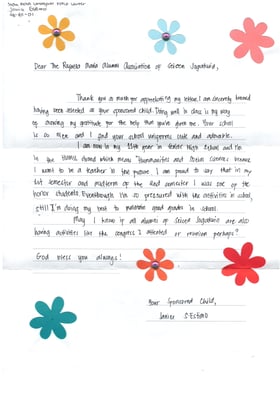 Dear The Regnera Maria Alumni Association of Seisen Jogakuin,
Thank you so much for appreciating my letter. I am sincerely honored
having been selected as your sponsored child. Doing well in class is my way
of showing my gratitude for the help that you've given me. Your school
is so nice and I find your school uniforms cute and adorable.
I am now in my 11th year in Senior High School and I'm
in the HUMSS strand which means "Humanities and Social Sciences" because
I want to be a teacher in the future. I am proud to say that in my
1st semester and midterm of the 2nd semester I was one of the
honor students. Eventhough I'm so pressured with the activities in school,
still I'm doing my best to maintain good grades in school.
May I know if all alumni of Seisen Jogakuin are also
having activities like the congress I attended or reunion perhaps?
God bless you always!
Your Sponsored Child,